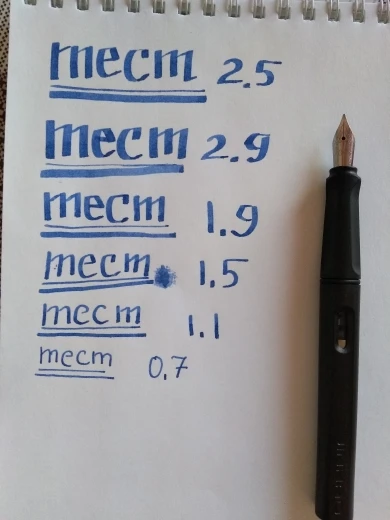 тест 2.5
тест 2.9
тест 1.9
тест 1.5
тест 1.1
тест 0,7